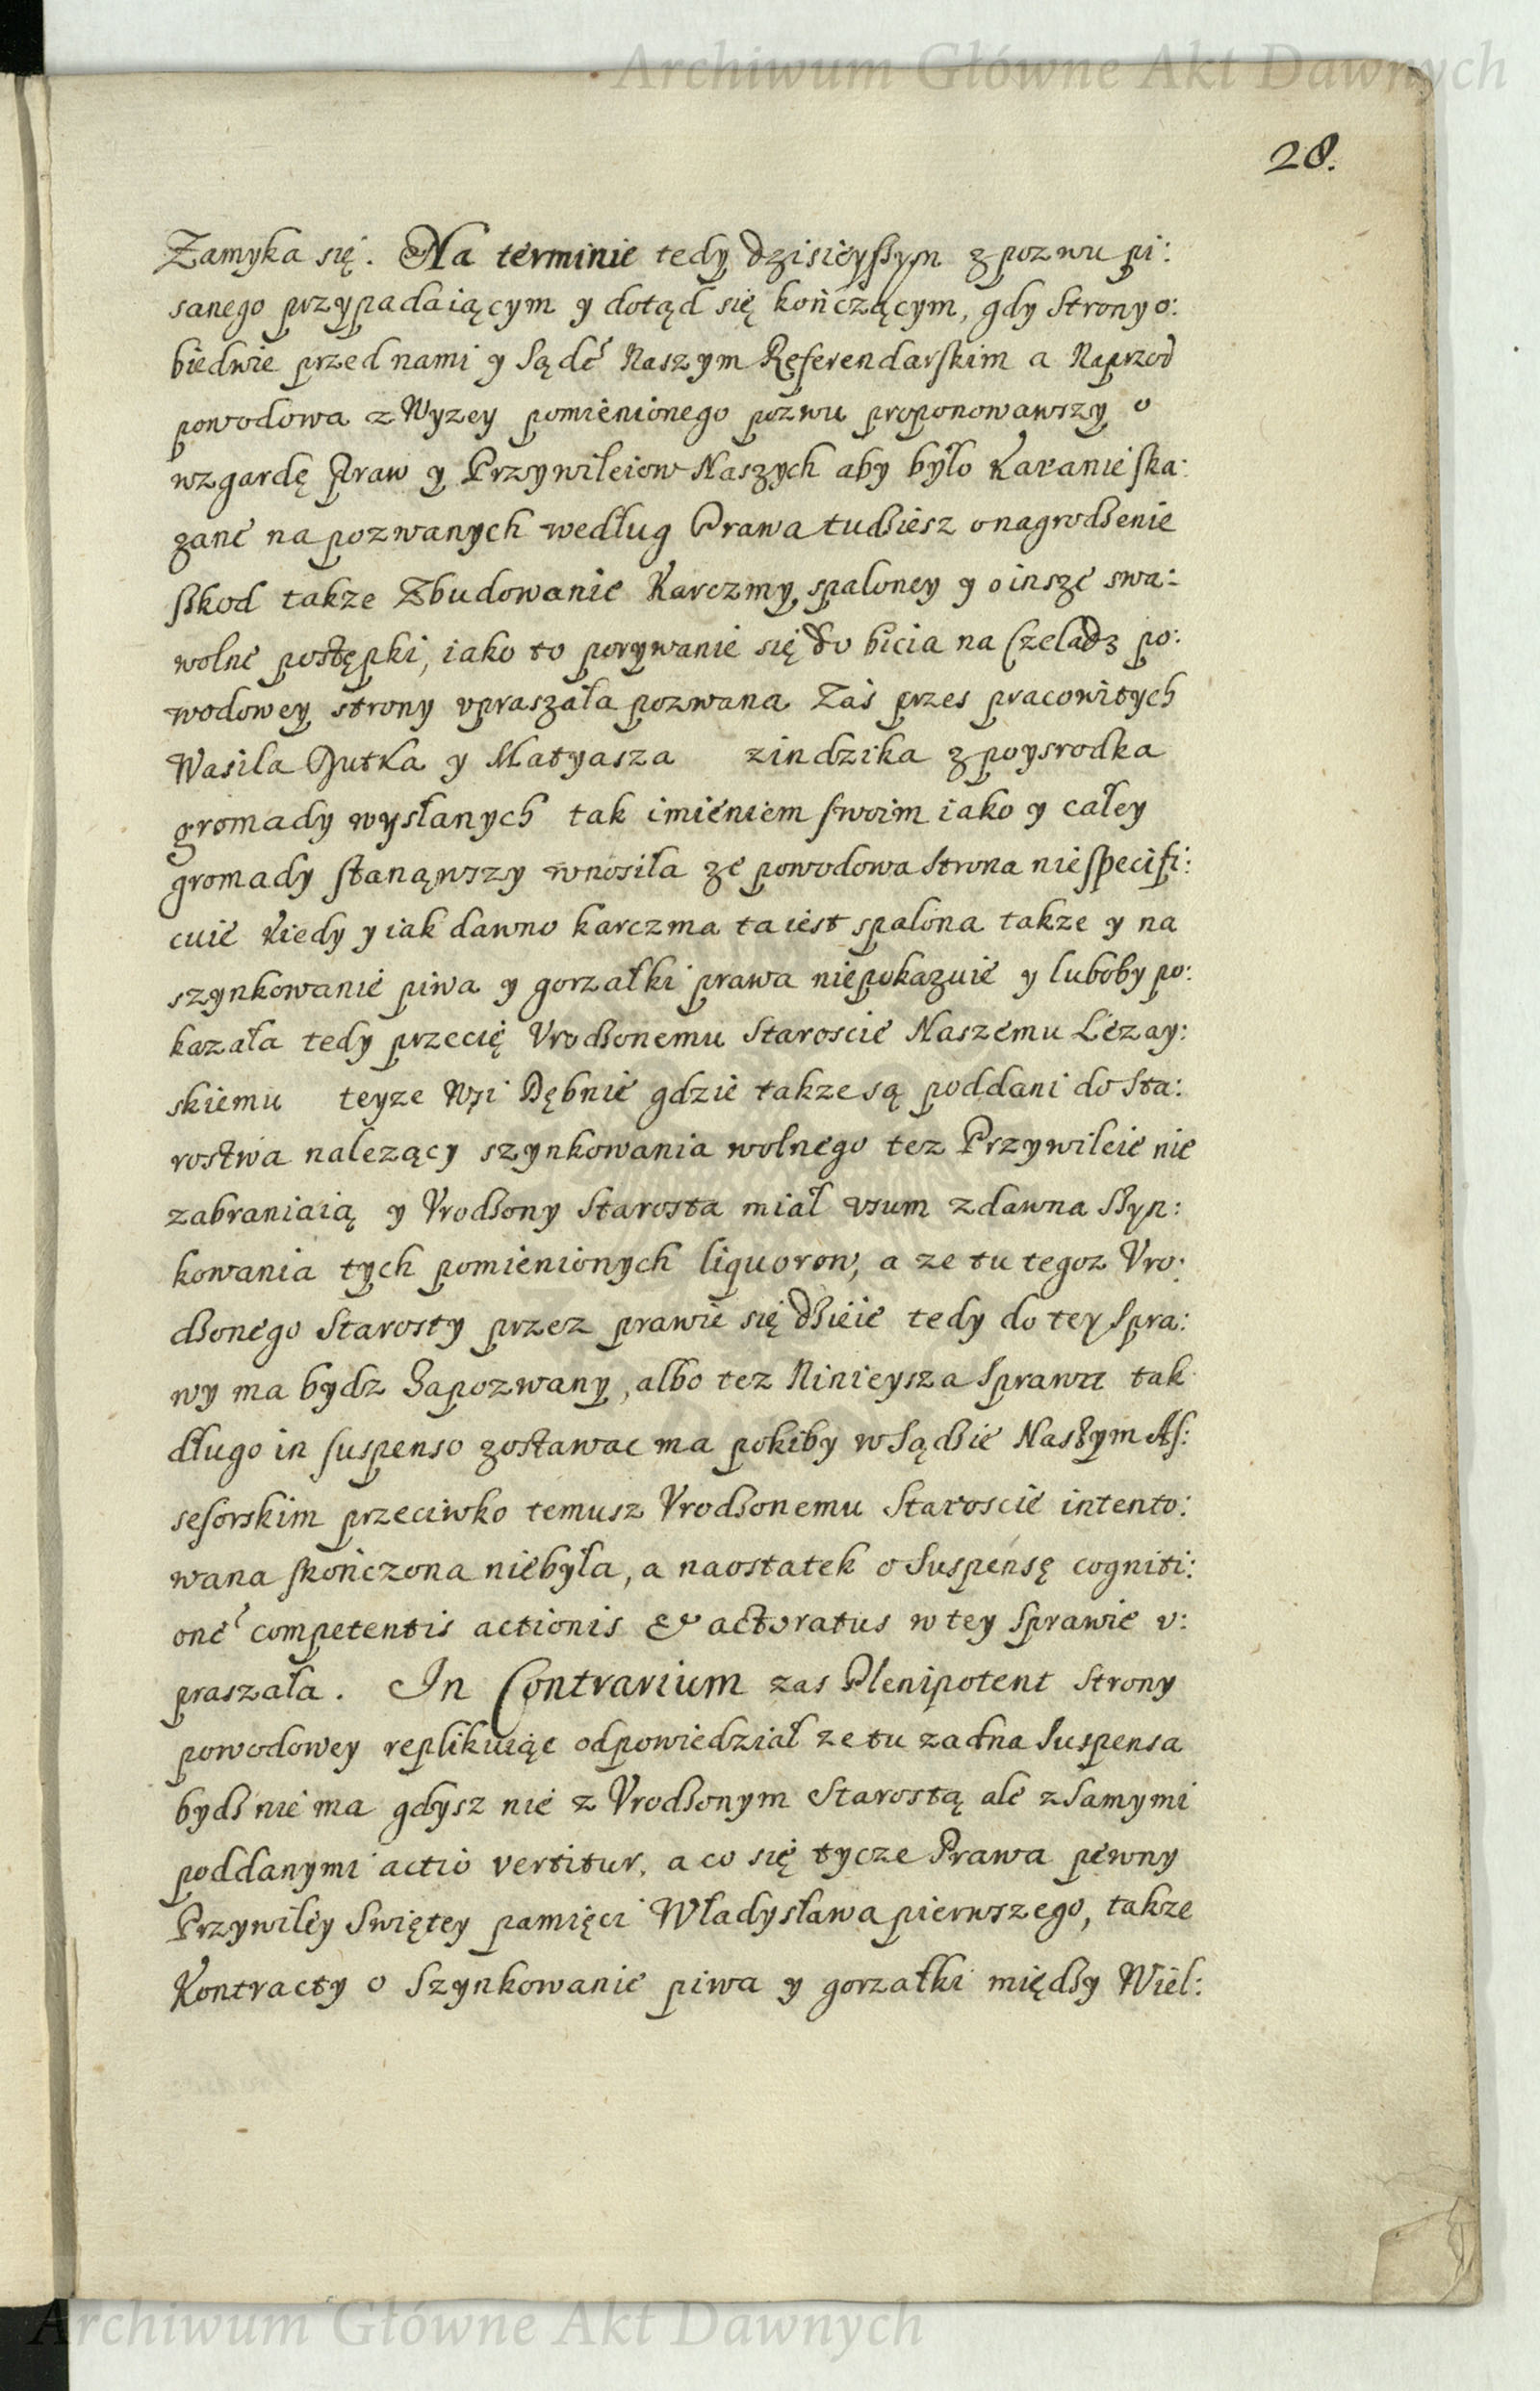 Archiwum Główne Akt Dawnych
28.
Zamyka się. Na terminie tedy dzisieyszym z pozwu pi:
sanego przypadaiącym y dotąd się kończącym, gdy Strony o:
biedwie przed nami y Sądē Naszym Referendarskim a Naprzod
powodowa z Wyzey pomienionego pozwu proponowawszy o
wzgardę Praw y Przywileiow Naszych aby było Karanie ska:
zane na pozwanych według Prawa tudziesz o nagrodzenie
szkod takze Zbudowanie Karczmy spaloney y o insze swa:
wolne postępki, iako to porywanie się do bicia na Czeladz po:
wodowey strony vpraszała pozwana Zas przes pracowitych
Wasila Dutka y Matyasza zindzika z poysrodka
gromady wysłanych tak imieniem swoim iako y całey
gromady stanąwszy wnosiła ze powodowa Strona niespecifi:
cuie kiedy y iak dawno karczma ta iest spalona takze y na
szynkowanie piwa y gorzałki prawa niepokazuie y luboby po:
kazała tedy przecię Vrodzonemu Staroscie Naszemu Lezay:
skiemu teyze Wsi Dębnie gdzie takze są poddani do Sta:
rostwa nalezący szynkowania wolnego tez Przywileie nie
zabraniaią y Vrodzony Starosta miał vsum zdawna Szyn:
kowania tych pomienionych liquorow, a ze tu tegoz Vro:
dzonego Starosty przez prawie się dzieie tedy do tey Spra:
wy ma bydz Zapozwany, albo tez Ninieysza Sprawa tak
długo in suspenso zostawac ma pokiby w Sądzie Naszym As:
sesorskim przeciwko temusz Vrodzonemu Staroscie intento:
wana skończona niebyła, a naostatek o Suspensę cogniti:
onē competentis actionis & actoratus w tey Sprawie v:
praszała. In Contrarium zas Plenipotent Strony
powodowey replikuiąc odpowiedział ze tu zadna Suspensa
bydz nie ma gdysz nie z Vrodzonym Starostą ale z Samymi
poddanymi actio vertitur, a co się tycze Prawa pewny
Przywiley Swiętey pamięci Władysława pierwszego, takze
Kontracty o Szynkowanie piwa y gorzałki między Wiel:
Archiwum Główne Akt Dawnych